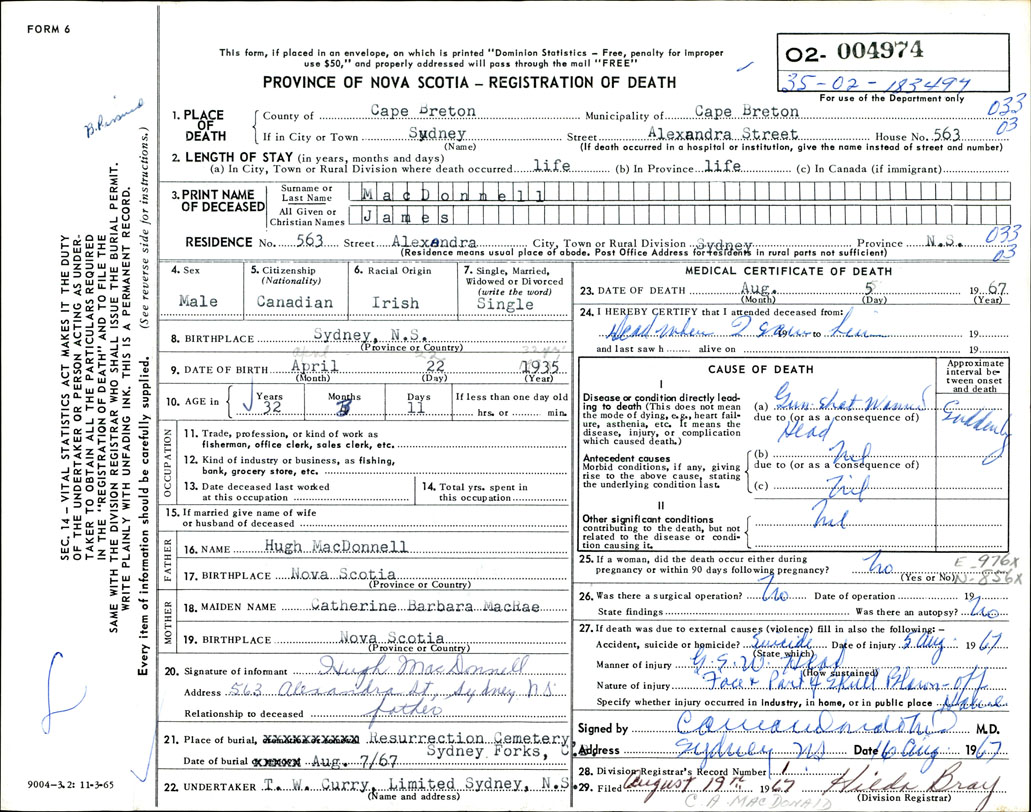 FORM 6
This form, if placed in an envelope, on which is printed "Dominion Statistics – Free, penalty for improper
use $50," and properly addressed will pass through the mail "FREE"
PROVINCE OF NOVA SCOTIA – REGISTRATION OF DEATH
02- 004974
35-02-183497
For use of the Department only
033
03
1. PLACE OF DEATH
County of Cape Breton Municipality of Cape Breton
If in City or Town Sydney Street Alexandra Street House No. 563
(Name) (If death occurred in a hospital or institution, give the name instead of street and number)
2. LENGTH OF STAY (in years, months and days)
(a) In City, Town or Rural Division where death occurred life (b) In Province life (c) In Canada (if immigrant)
3. PRINT NAME OF DECEASED
Surname or Last Name MacDonnell
All Given or Christian Names James
RESIDENCE No. 563 Street Alexandra City, Town or Rural Division Sydney Province N.S.
(Residence means usual place of abode. Post Office Address for residents in rural parts not sufficient)
033
03
4. Sex
Male
5. Citizenship
(Nationality)
Canadian
6. Racial Origin
Irish
7. Single, Married,
Widowed or Divorced
(write the word)
Single
8. BIRTHPLACE Sydney, N.S.
(Province or Country)
9. DATE OF BIRTH April 22 1935
(Month) (Day) (Year)
10. AGE in
Years Months Days If less than one day old
32 3 11 hrs. or min.
OCCUPATION
11. Trade, profession, or kind of work as
fisherman, office clerk, sales clerk, etc.
12. Kind of industry or business, as fishing,
bank, grocery store, etc.
13. Date deceased last worked
at this occupation
14. Total yrs. spent in
this occupation
15. If married give name of wife
or husband of deceased
FATHER
16. NAME Hugh MacDonnell
17. BIRTHPLACE Nova Scotia
(Province or Country)
MOTHER
18. MAIDEN NAME Catherine Barbara MacRae
19. BIRTHPLACE Nova Scotia
(Province or Country)
20. Signature of informant Hugh MacDonnell
Address 563 Alexandra St, Sydney NS
Relationship to deceased father
21. Place of burial, Resurrection Cemetery
Sydney Forks, C.B.
Date of burial Aug. 7/67
22. UNDERTAKER T. W. Curry, Limited Sydney, N.S.
(Name and address)
MEDICAL CERTIFICATE OF DEATH
23. DATE OF DEATH Aug. 5 1967
(Month) (Day) (Year)
24. I HEREBY CERTIFY that I attended deceased from:
Dead when I saw to him 19
and last saw h alive on 19
CAUSE OF DEATH
Approximate interval between onset and death
I
Disease or condition directly leading to death (This does not mean the mode of dying, e.g., heart failure, asthenia, etc. It means the disease, injury, or complication which caused death.)
(a) Gun shot Wound Suddenly
due to (or as a consequence of)
Head
Antecedent causes
Morbid conditions, if any, giving rise to the above cause, stating the underlying condition last.
(b) Nil
due to (or as a consequence of)
(c) Nil
II
Other significant conditions
contributing to the death, but not related to the disease or condition causing it.
Nil
25. If a woman, did the death occur either during
pregnancy or within 90 days following pregnancy? No
(Yes or No)
E-976X
N-856X
26. Was there a surgical operation? No Date of operation 19
State findings Was there an autopsy? No
27. If death was due to external causes (violence) fill in also the following: –
Accident, suicide or homicide? Suicide Date of injury 5 Aug. 1967
(State which)
Manner of injury G.S.W. Head
(How sustained)
Nature of injury "Face & Part of Skull Blown-off
Specify whether injury occurred in industry, in home, or in public place
Signed by M.D.
Address Sydney NS Date 6 Aug 1967
28. Division Registrar's Record Number 1
29. Filed August 19th 1967 Hilda Bray
(Division Registrar)
C. A. MACDONALD
SEC. 14 – VITAL STATISTICS ACT MAKES IT THE DUTY
OF THE UNDERTAKER OR PERSON ACTING AS UNDER-
TAKER TO OBTAIN ALL THE PARTICULARS REQUIRED
IN THE "REGISTRATION OF DEATH" AND TO FILE THE
SAME WITH THE DIVISION REGISTRAR WHO SHALL ISSUE THE BURIAL PERMIT.
WRITE PLAINLY WITH UNFADING INK. THIS IS A PERMANENT RECORD.
Every item of information should be carefully supplied. (See reverse side for instructions.)
9004-3.2: 11-3-65